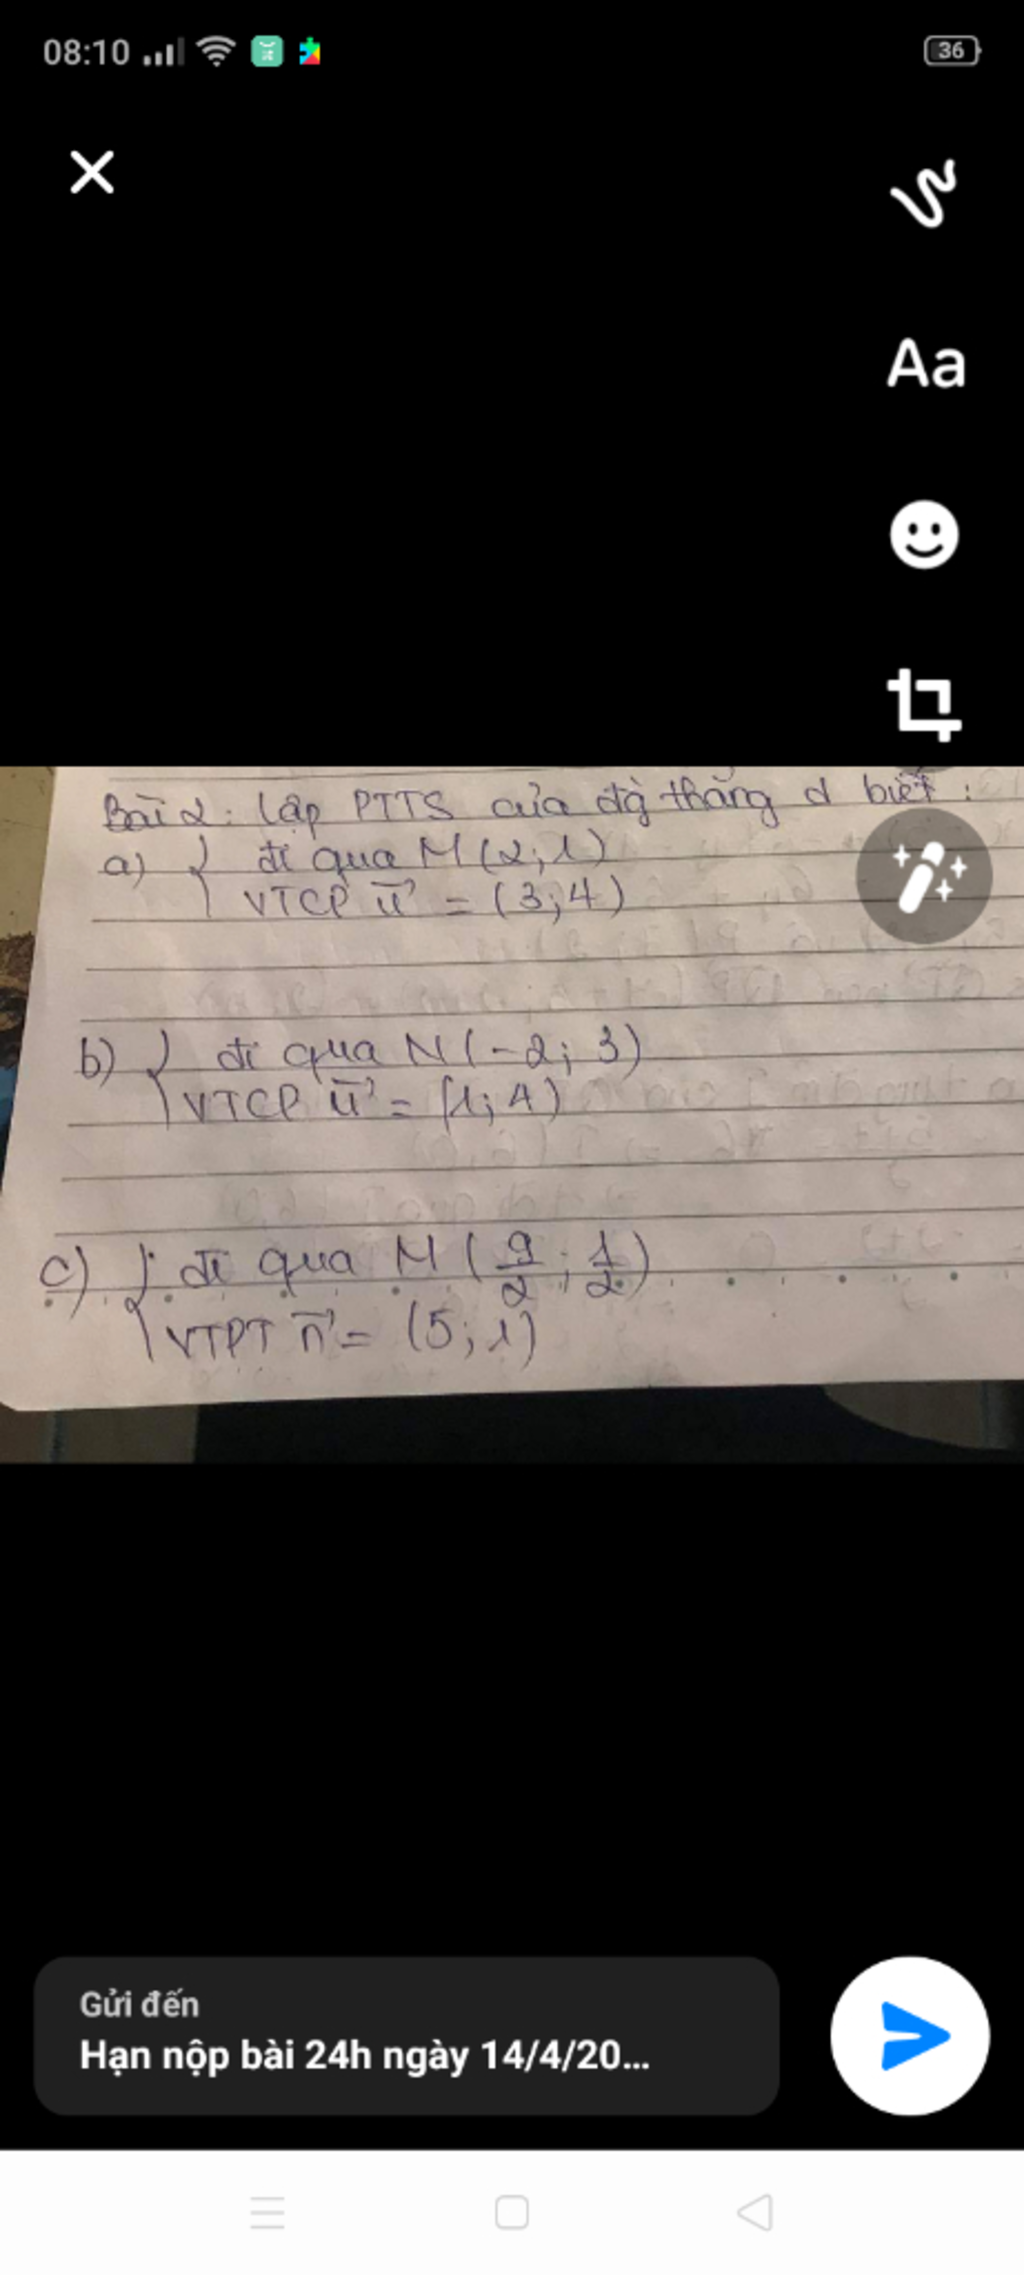 08:10
36
Aa
Bài 2: Lập PTTS của đg thẳng d biết:
a) { đi qua M(2;1)
VTCP u⃗ = (3;4)
b) { đi qua N(-2; 3)
VTCP u⃗ = (1; 4)
c) { đi qua M (9/2; 1/2)
VTPT n⃗ = (5; 1)
Gửi đến
Hạn nộp bài 24h ngày 14/4/20...